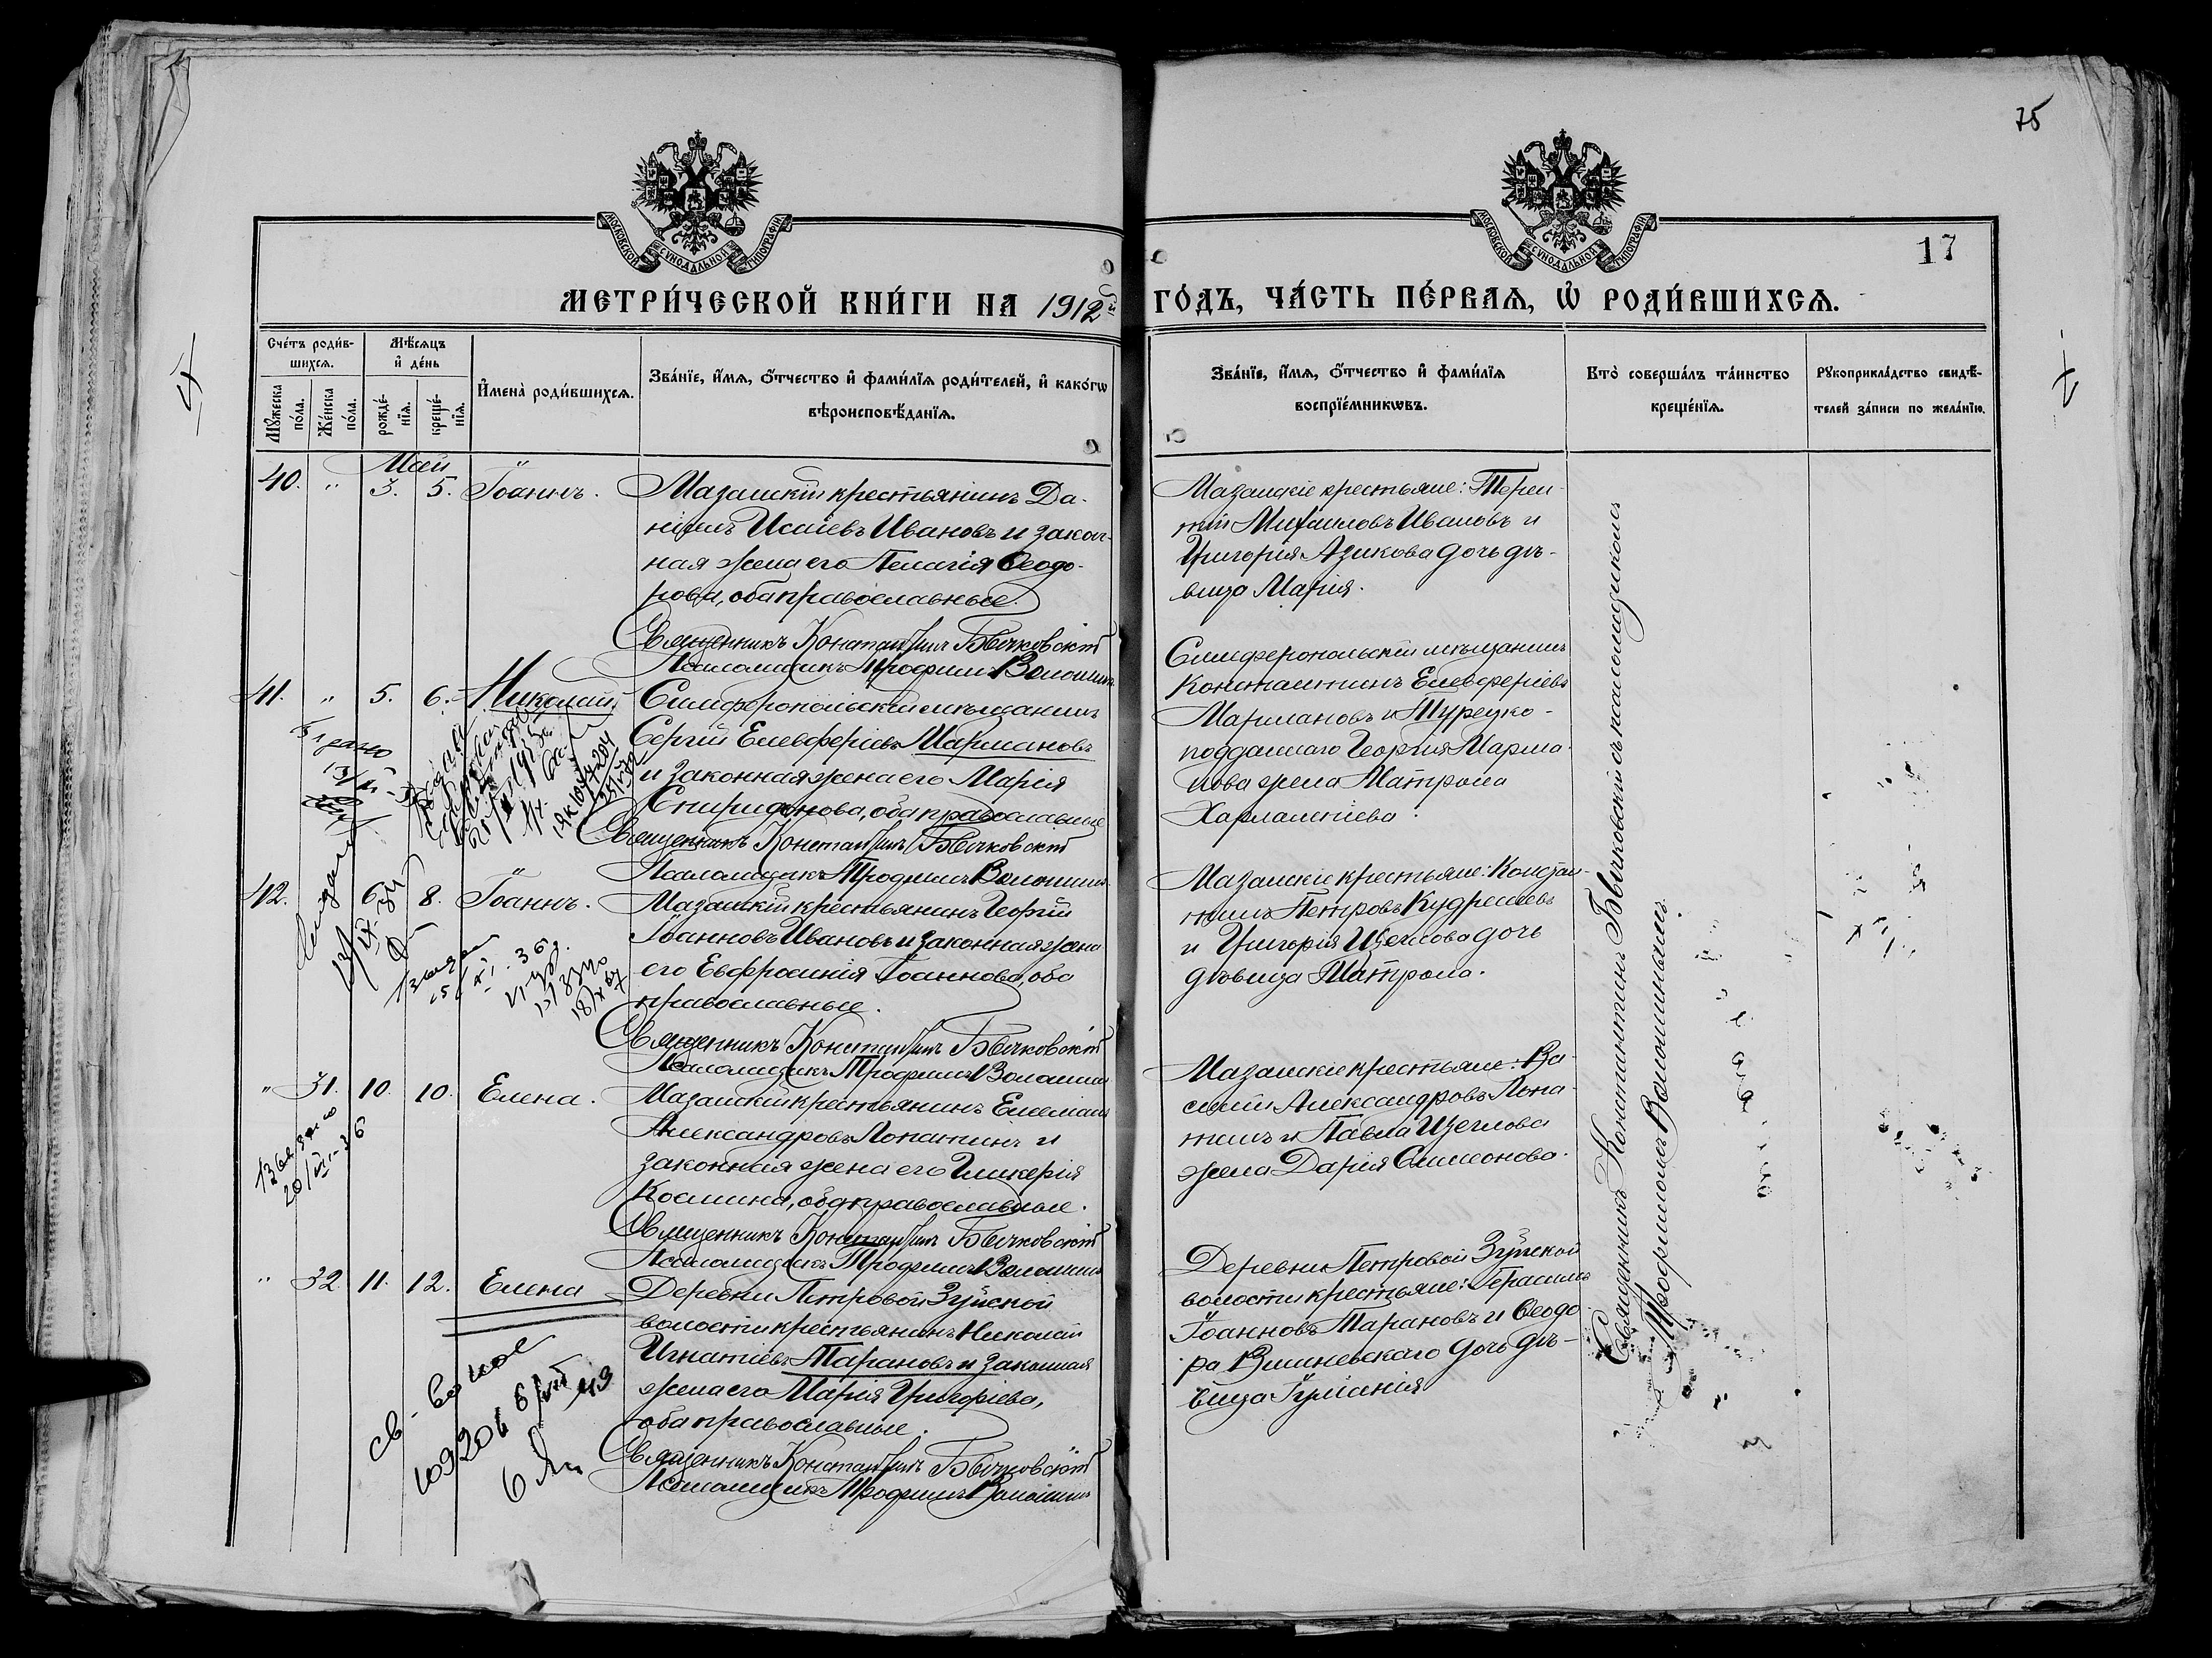 75
17
МОСКОВСКОЙ СУНОДАЛЬНОЙ ТИПОГРАФІИ
МОСКОВСКОЙ СУНОДАЛЬНОЙ ТИПОГРАФІИ
МЕТРИ́ЧЕСКОЙ КНИ́ГИ НА 1912 ГО́ДЪ, ЧА́СТЬ ПЕ́РВАЯ, Ѡ РОДИ́ВШИХСЯ.
Сче́тъ роди́в-
шихся.
Мѣ́сяцъ
и҆ де́нь
Му́жеска
по́ла.
Же́нска
по́ла.
рожде́-
нїя.
креще́-
нїя.
И҆мена̀ роди́вшихся.
Зва́нїе, и҆́мя, о҆́тчество и҆ фами́лїя роди́телей, и҆ како́гѡ
вѣроисповѣ́данїя.
Зва́нїе, и҆́мя, о҆́тчество и҆ фами́лїя
воспрїе́мникѡвъ.
Кто̀ соверша́лъ та́инство
креще́нїя.
Рукоприкла́дство свидѣ́-
телей за́писи по жела́нїю.
Май
40. " 3. 5. Іоаннъ.
Мазанскій крестьянинъ Да-
ніилъ Исаіевъ Ивановъ и закон-
ная жена его Пелагія Ѳеодо-
рова, оба православные.
Священникъ Константинъ Бычковскій
Псаломщикъ Трофимъ Волошинъ
Мазанскіе крестьяне: Терен-
тій Михаиловъ Ивановъ и
Григорія Азикова дочь дѣ-
вица Марія.
41. " 5. 6. Николай
Симферопольскій мѣщанинъ
Сергій Елевферіевъ Мармановъ
и законная жена его Марія
Спиридонова, оба православные
Священникъ Константинъ Бычковскій
Псаломщикъ Трофимъ Волошинъ
Симферопольскій мѣщанинъ
Константинъ Елевферіевъ
Мармановъ и Турецко-
подданнаго Георгія Марма-
нова жена Матрона
Харлампіева.
42. 6. 8. Іоаннъ.
Мазанскій крестьянинъ Георгій
Іоанновъ Ивановъ и законная жена
его Евфросинія Іоаннова, оба
православные.
Священникъ Константинъ Бычковскій
Псаломщикъ Трофимъ Волошинъ
Мазанскіе крестьяне: Констан-
тинъ Петровъ Кудреневъ
и Григорія Щеглова дочь
дѣвица Матрона.
" 31. 10. 10. Елена.
Мазанскій крестьянинъ Емеліанъ
Александровъ Лопатинъ и
законная жена его Гликерія
Космина, оба православные.
Священникъ Константинъ Бычковскій
Псаломщикъ Трофимъ Волошинъ
Мазанскіе крестьяне: Ва-
силій Александровъ Лопа-
тинъ и Павла Щеглова
жена Дарія Симеонова.
" 32. 11. 12. Елена
Деревни Петровой Зуйской
волости крестьянинъ Николай
Игнатіевъ Тарановъ и законная
жена его Марія Григоріева,
оба православные.
Священникъ Константинъ Бычковскій
Псаломщикъ Трофимъ Волошинъ
Деревни Петровой Зуйской
волости крестьяне: Герасимъ
Іоанновъ Тарановъ и Ѳеодо-
ра Вишневскаго дочь дѣ-
вица Іуліанія
Священникъ Константинъ Бычковскій съ псаломщикомъ
Трофимомъ Волошинымъ.